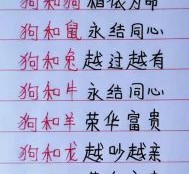 狗和鼠永结同心
狗和兔越过越有
狗和牛永结同心
狗和羊荣华富贵
狗和龙越吵越亲